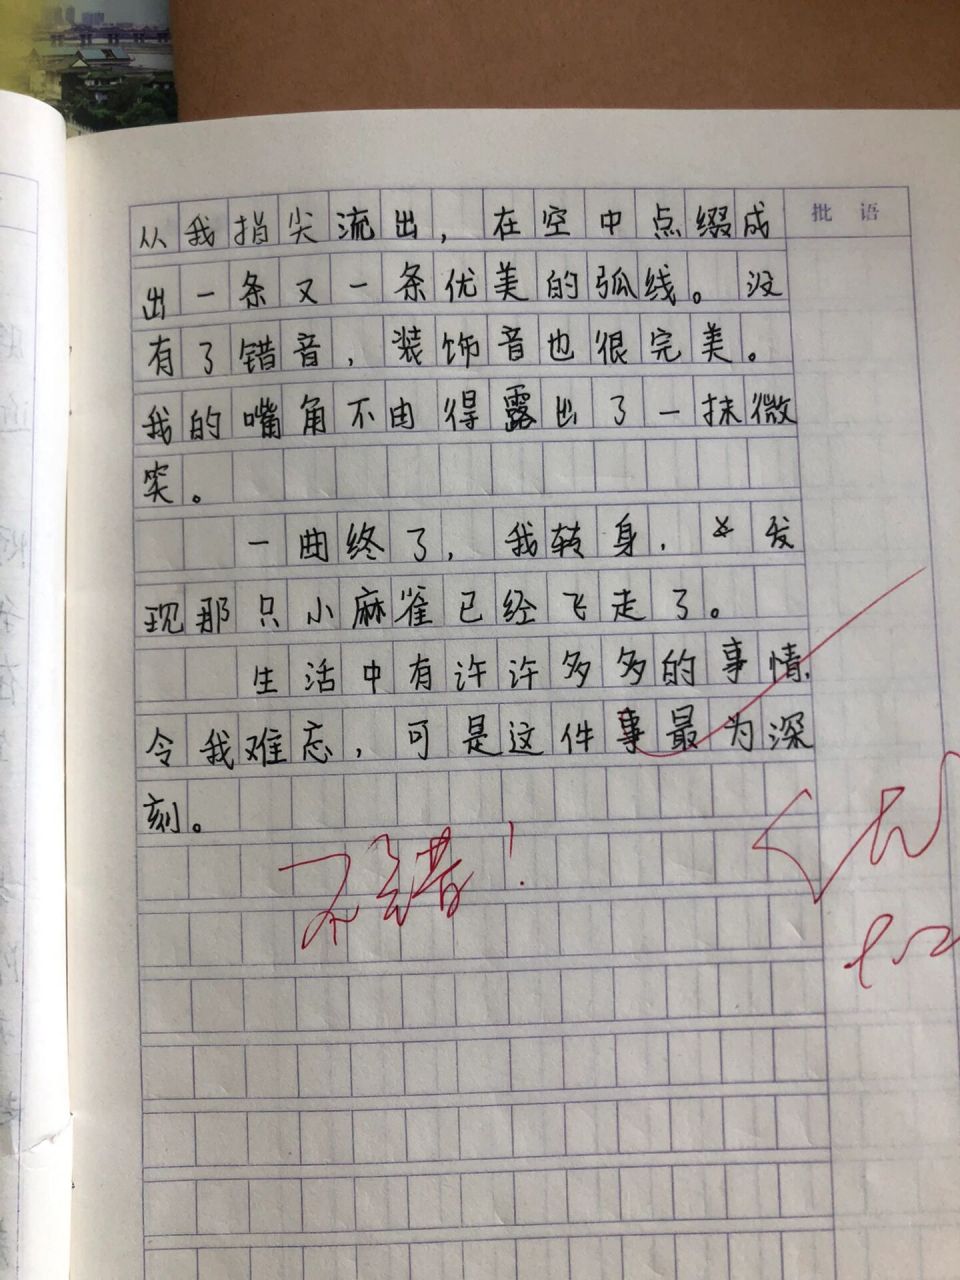 批 语
从我指尖流出，在空中点缀成
出一条又一条优美的弧线。没
有了错音，装饰音也很完美。
我的嘴角不由得露出了一抹微
笑。
一曲终了，我转身，发
现那只小麻雀已经飞走了。
生活中有许许多多的事情
令我难忘，可是这件事最为深
刻。
不错！